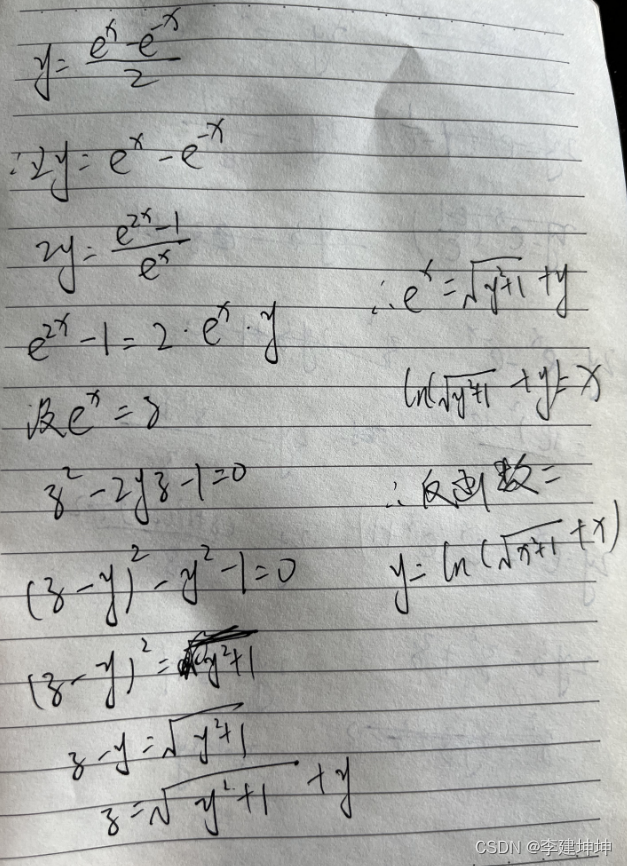 y = (e^x - e^-x) / 2
∴ 2y = e^x - e^-x
2y = (e^2x - 1) / e^x
e^2x - 1 = 2 · e^x · y
设 e^x = z
z² - 2yz - 1 = 0
(z - y)² - y² - 1 = 0
(z - y)² = y² + 1
z - y = √(y² + 1)
z = √(y² + 1) + y
∴ e^x = √(y² + 1) + y
ln(√(y² + 1) + y) = x
∴ 反函数 =
y = ln(√(x² + 1) + x)
CSDN @李建坤坤